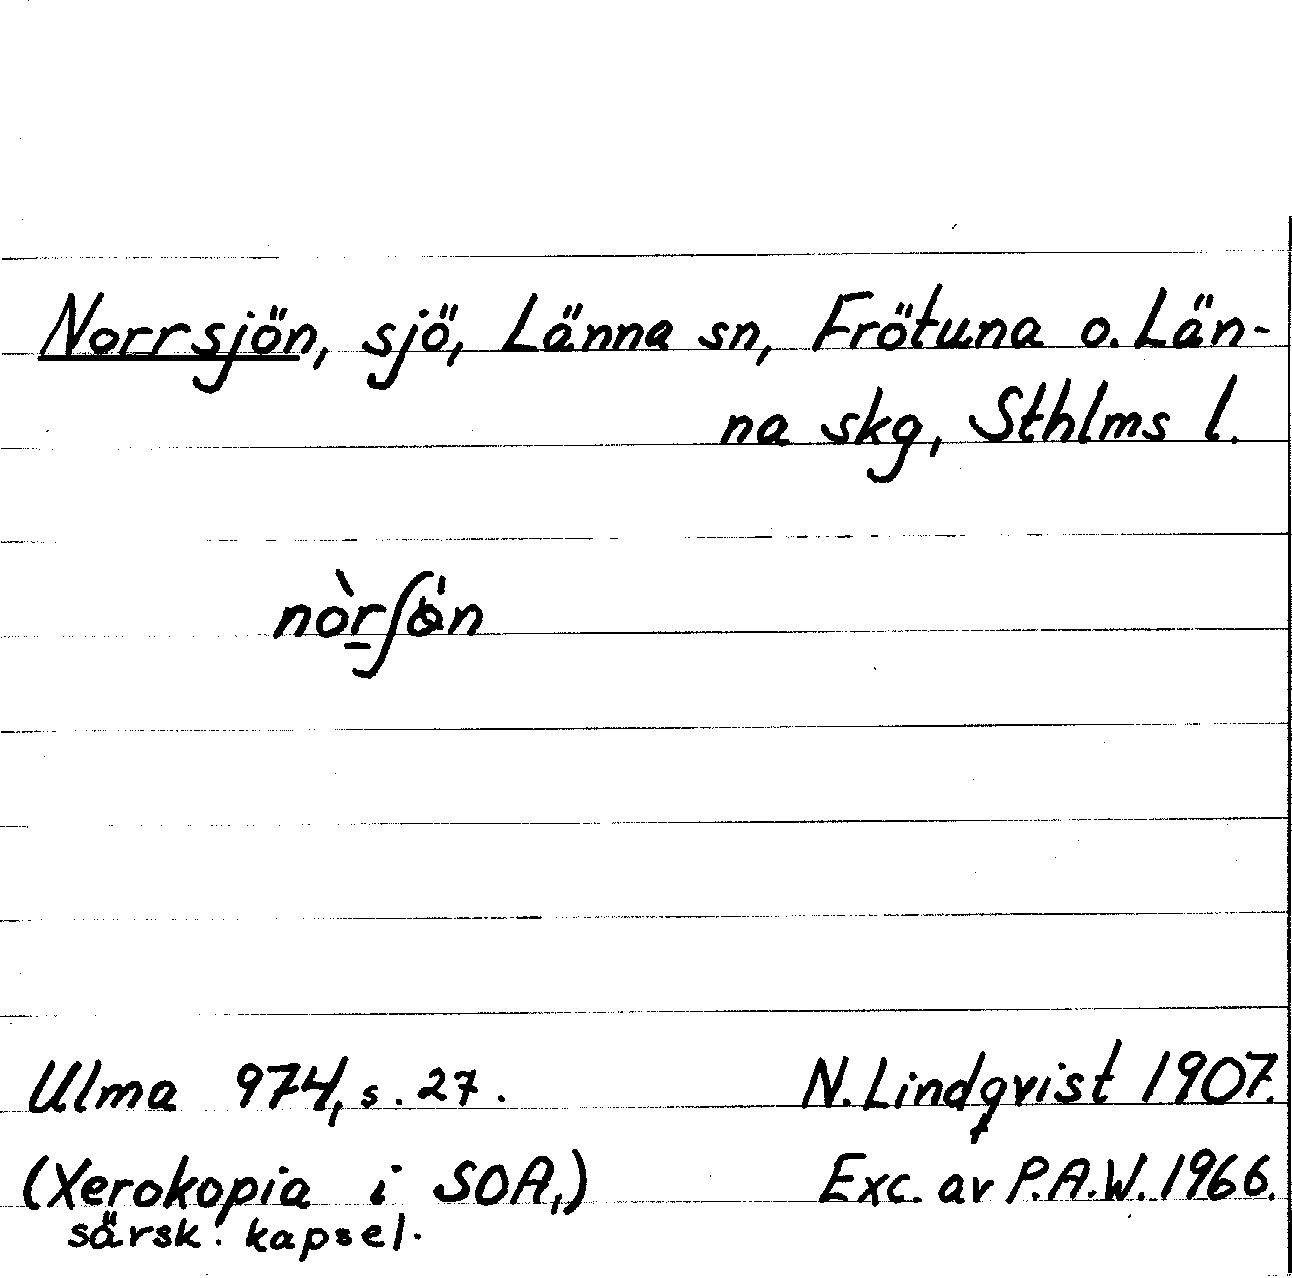 Norrsjön, sjö, Länna sn, Frötuna o. Län-
na skg, Sthlms l.
nòr̲ʃǿn
Ulma 974, s. 27.
N. Lindqvist 1907.
(Xerokopia i SOA,)
Exc. av P.A.W. 1966.
särsk. kapsel.